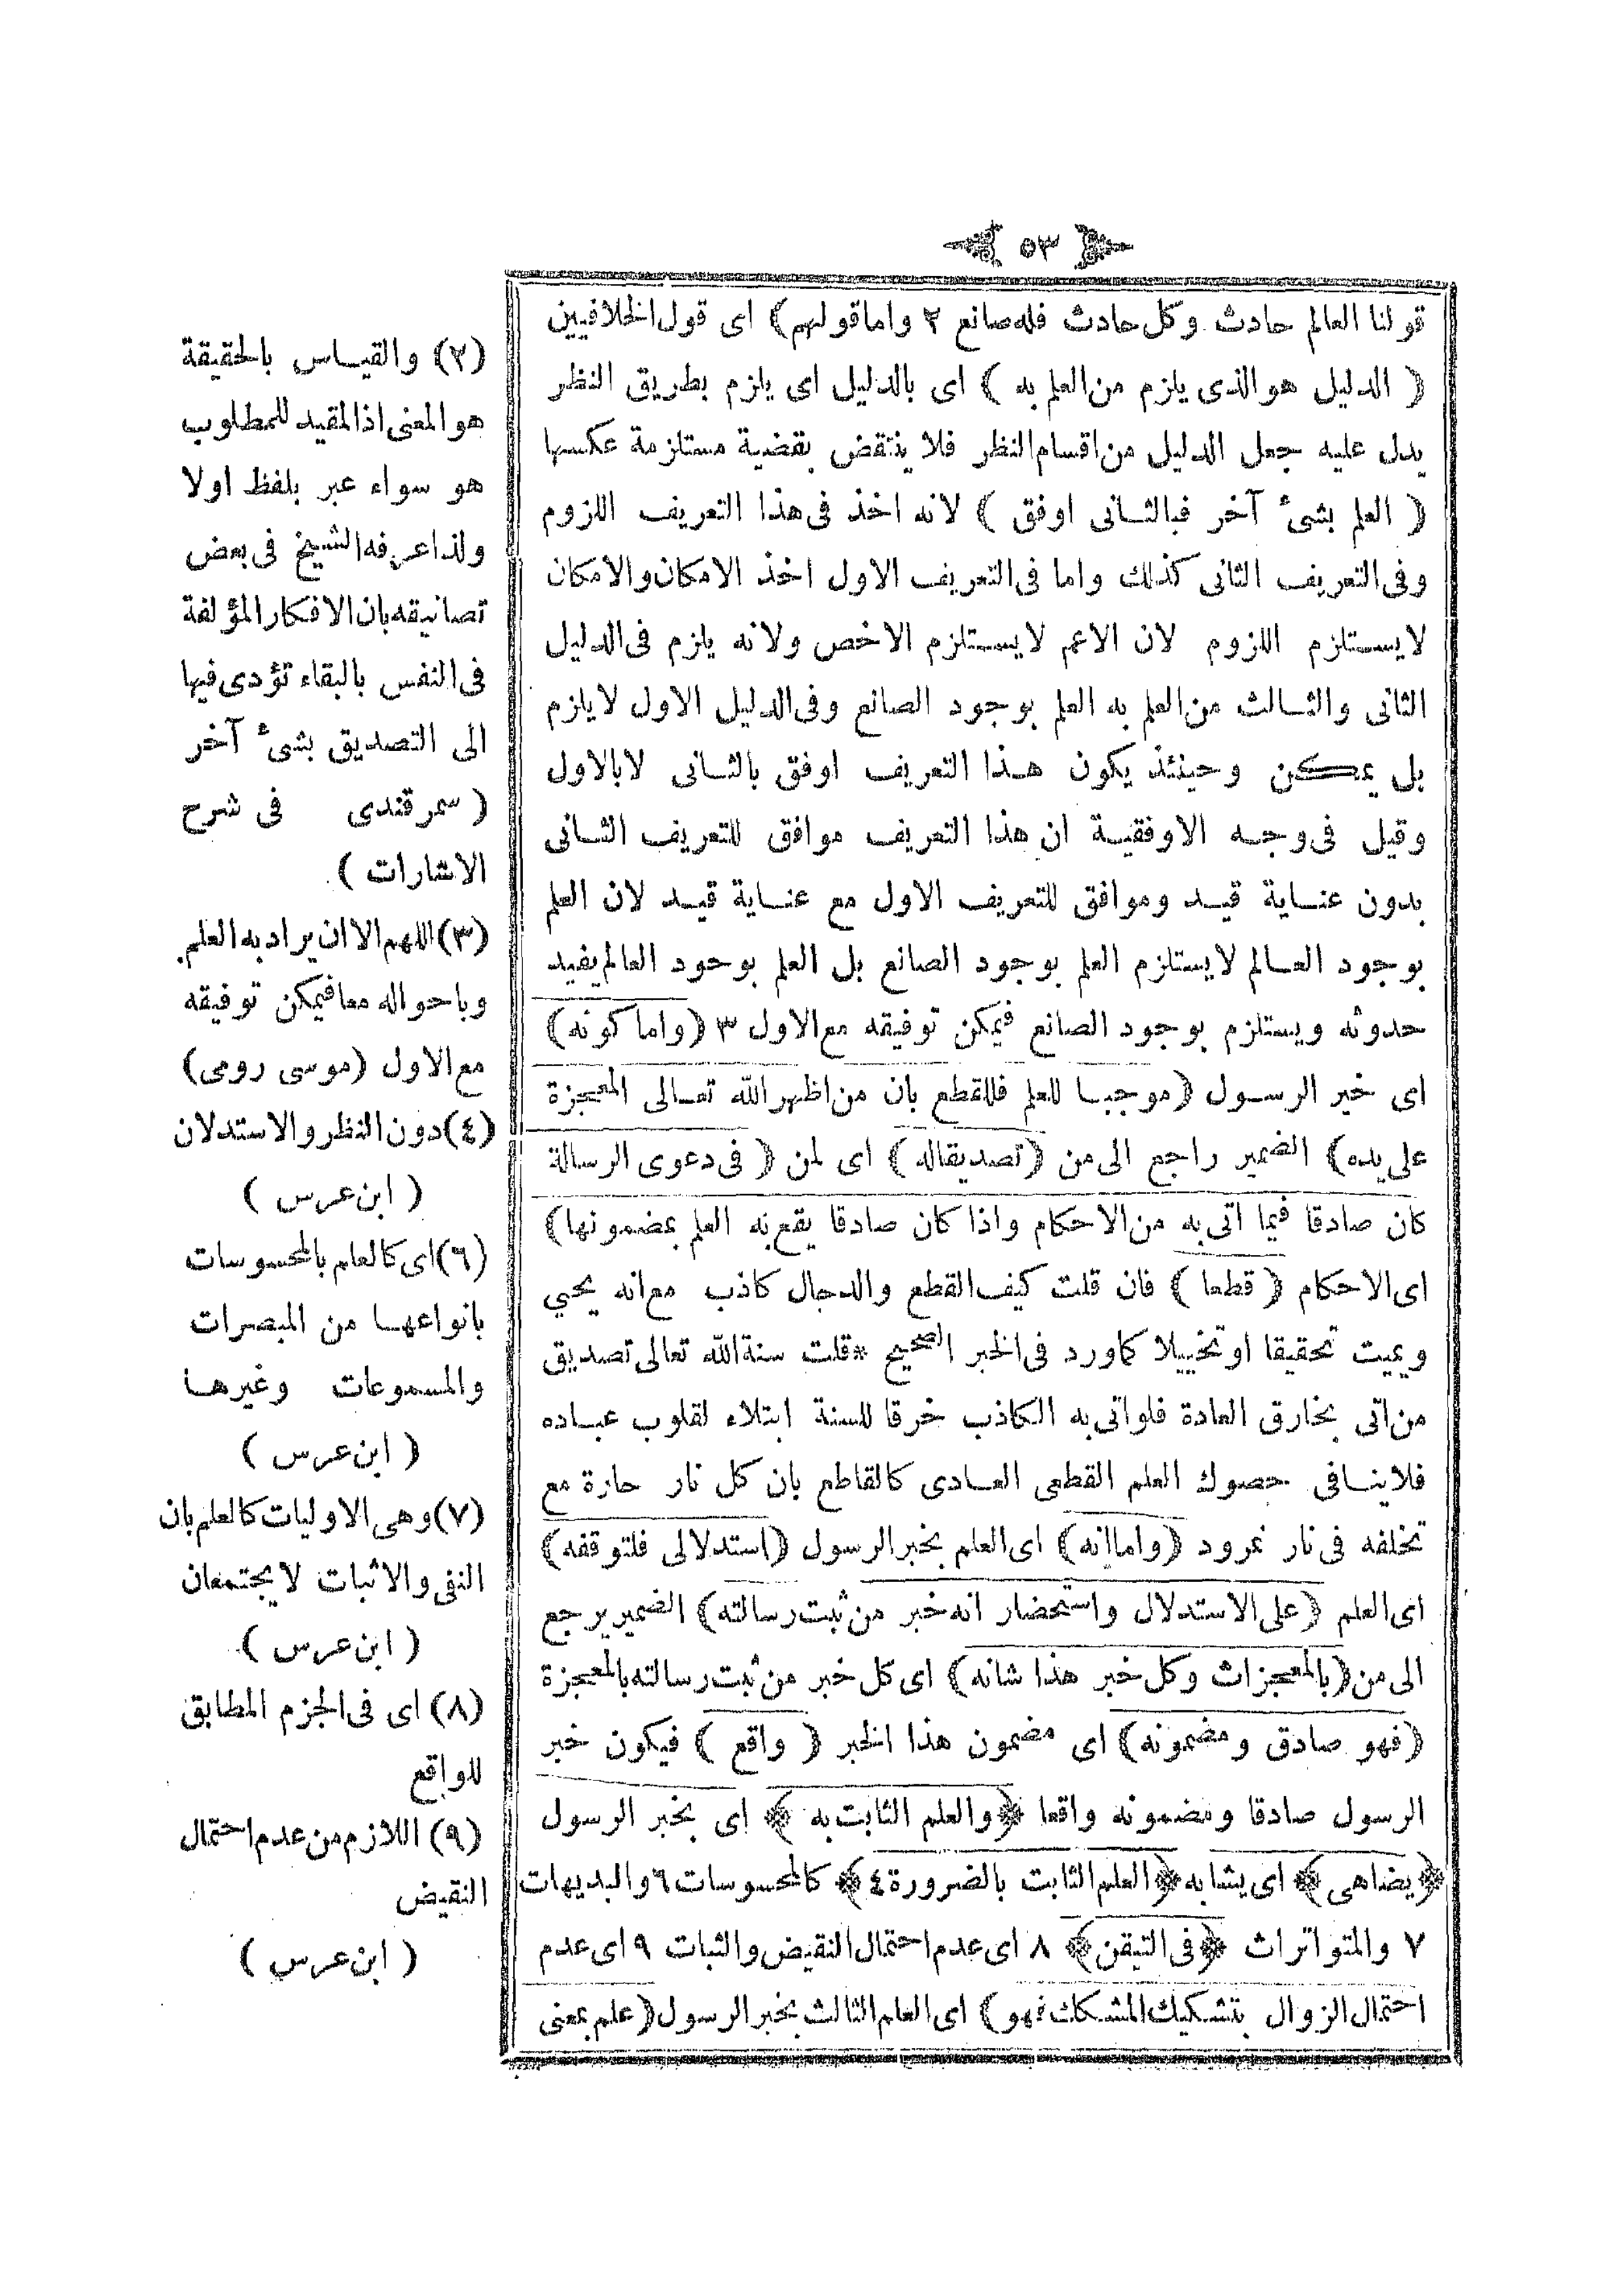 ٥٣
قولنا العالم حادث وكل حادث فله صانع ٢ واما قولهم) اى قول الخلافيين
( الدليل هو الذى يلزم من العلم به ) اى بالدليل اى يلزم بطريق النظر
يدل عليه جعل الدليل من اقسام النظر فلا ينتقض بقضية مستلزمة عكسها
( العلم بشئ آخر فبالثانى اوفق ) لانه اخذ فى هذا التعريف اللزوم
وفى التعريف الثانى كذلك واما فى التعريف الاول اخذ الامكان والامكان
لايستلزم اللزوم لان الاعم لايستلزم الاخص ولانه يلزم فى الدليل
الثانى والثالث من العلم به العلم بوجود الصانع وفى الدليل الاول لايلزم
بل يمكن وحينئذ يكون هذا التعريف اوفق بالثانى لابالاول
وقيل فى وجه الاوفقية ان هذا التعريف موافق للتعريف الثانى
بدون عناية قيد وموافق للتعريف الاول مع عناية قيد لان العلم
بوجود العالم لايستلزم العلم بوجود الصانع بل العلم بوحود العالم يفيد
حدوثه ويستلزم بوجود الصانع فيمكن توفيقه مع الاول ٣ (واما كونه)
اى خبر الرسول (موجبا للعلم فللقطع بان من اظهر الله تعالى المعجزة
على يده) الضمير راجع الى من (تصديقاله) اى لمن ( فى دعوى الرسالة
كان صادقا فيما اتى به من الاحكام واذا كان صادقا يقع نه العلم بمضمونها)
اى الاحكام ( قطعا ) فان قلت كيف القطع والدجال كاذب مع انه يحيي
ويميت تحقيقا او تخييلا كما ورد فى الخبر الصحيح *قلت سنة الله تعالى تصديق
من اتى بخارق العادة فلو اتى به الكاذب خرقا للسنة ابتلاء لقلوب عباده
فلاينافى حصوك العلم القطعى العادى كالقاطع بان كل نار حارة مع
تخلفه فى نار نمرود (واما انه) اى العلم بخبر الرسول (استدلالى فلتوقفه)
اى العلم (على الاستدلال واستحضار انه خبر من ثبت رسالته) الضمير يرجع
الى من (بالمعجزات وكل خبر هذا شانه) اى كل خبر من ثبت رسالته بالمعجزة
(فهو صادق ومضمونه) اى مضمون هذا الخبر ( واقع ) فيكون خبر
الرسول صادقا ومضمونه واقعا ﴿والعلم الثابت به ﴾ اى بخبر الرسول
﴿يضاهى﴾ اى يشابه ﴿العلم الثابت بالضرورة ٤﴾ كالمحسوسات ٦ والبديهات
٧ والمتواترات ﴿فى التيقن﴾ ٨ اى عدم احتمال النقيض والثبات ٩ اى عدم
احتمال الزوال بتشكيك المشكك فهو) اى العلم الثالث بخبر الرسول (علم بمعنى
(٢) والقياس بالحقيقة
هو المعنى اذ المقيد للمطلوب
هو سواء عبر بلفظ اولا
ولذا عرفه الشيخ فى بعض
تصانيقه بان الافكار المؤلفة
فى النفس بالبقاء تؤدى فيها
الى التصديق بشئ آخر
( سمرقندى فى شرح
الاشارات )
(٣) اللهم الا ان يراد به العلم
وباحواله معا فيمكن توفيقه
مع الاول (موسى رومى)
(٤) دون النظر والاستدلان
( ابن عرس )
(٦) اى كالعلم بالمحسوسات
بانواعها من المبصرات
والمسموعات وغيرها
( ابن عرس )
(٧) وهى الاوليات كالعلم بان
النفى والاثبات لا يجتمعان
( ابن عرس )
(٨) اى فى الجزم المطابق
للواقع
(٩) اللازم من عدم احتمال
النقيض
( ابن عرس )